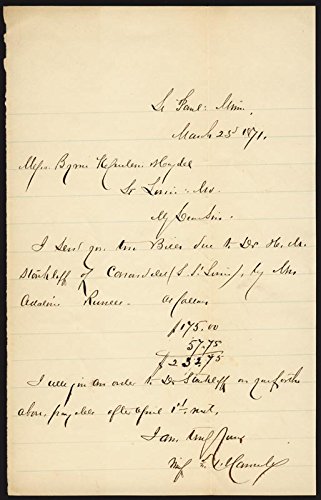 St Paul: Minn,
March 23d 1871,
Messrs Byrne
St Louis: Mo
My Dear Sirs.
I send you two Bills due to Dr H. M.
Starkloff of Carondelet (S. St. Louis), by Mrs
Adaline Russell. As follows
$175.00
57.75
$232.75
I will give an order to Dr Starkloff on you for the
above, payable after April 1st next,
I am truly yours